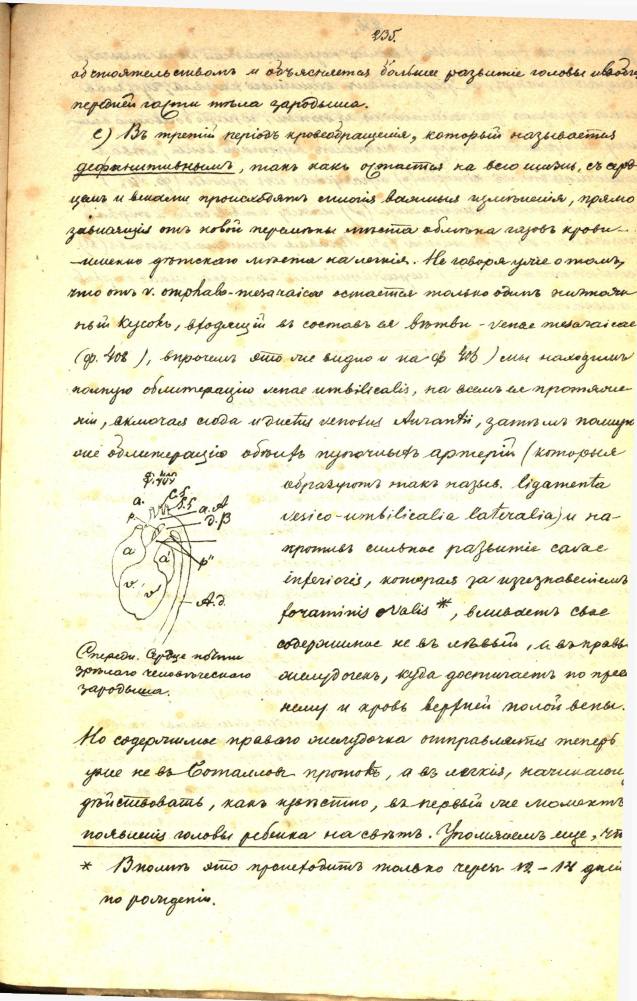 235.
обстоятельствомъ и объясняется большее развитіе головы и вообще
передней части тѣла зародыша.
с) Въ третій періодъ кровеобращенія, который называется
дефинитивнымъ, такъ какъ остается на всю жизнь, съ серд-
цемъ и венами происходятъ многія важныя измѣненія, прямо
зависящія отъ новой перемѣны мѣста обмѣна газовъ крови –
именно дѣтскаго мѣста на легкія. Не говоря уже о томъ,
что отъ v. omphalo-mesaraicae остается только одинъ
ный кусокъ, входящій въ составъ ея вѣтви - venae mesaraicae
(ф. 408), впрочемъ это же видно и на ф 403) мы находимъ
полную облитерацію venae umbilicalis, на всемъ ея протяже-
ніи, включая сюда и ductus venosus Aurantii, затѣмъ полную
же облитерацію обѣихъ пупочныхъ артерій (которыя
образуютъ такъ назыв. ligamenta
vesico-umbilicalia lateralia) и на-
противъ сильное развитіе cavae
inferioris, которая за изчезновеніемъ
foraminis ovalis *, вливаетъ свое
содержимое не въ лѣвый, а въ правый
желудочекъ, куда достигаетъ по преж-
нему и кровь верхней полой вены.
a. C.S. S.S a. A
p. д. B
a a' p"
v' v
A.д.
Спереди. Сердце почти
зрѣлаго человѣческаго
зародыша.
Но содержимое праваго желудочка отправляется теперь
уже не въ Боталловъ протокъ, а въ легкія, начинающія
дѣйствовать, какъ извѣстно, въ первый же моментъ
появленія головы ребенка на свѣтъ. Упомянемъ еще, что
* Вполнѣ это происходитъ только черезъ 12 – 14 дней
по рожденіи.